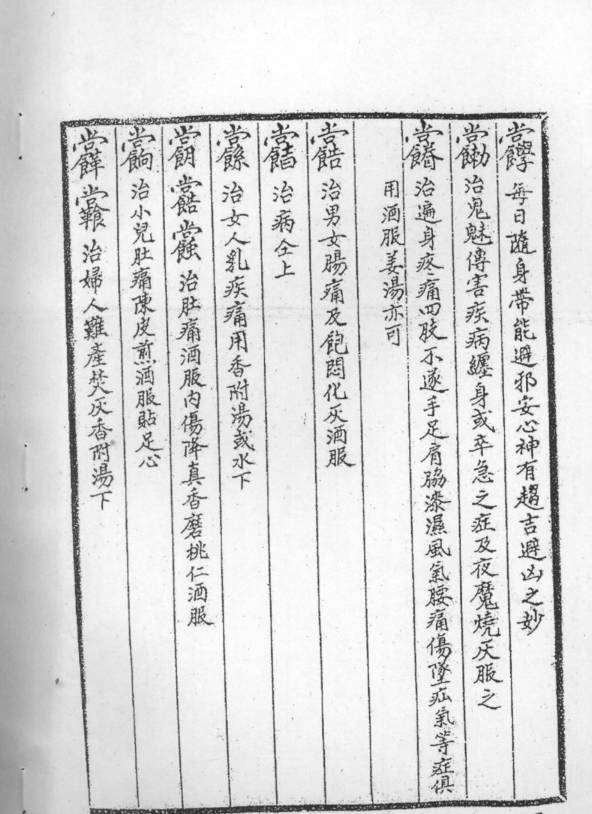 每日隨身帶能避邪安心神有趨吉避凶之妙
治鬼魅傳害疾病纏身或卒急之症及夜魔燒灰服之
治遍身疼痛四肢不遂手足肩脇漆濕風氣腰痛傷墜疝氣等症俱
用酒服姜湯亦可
治男女腸痛及飽悶化灰酒服
治病仝上
治女人乳疾痛用香附湯或水下
治肚痛酒服內傷降真香磨桃仁酒服
治小兒肚痛陳皮煎酒服貼足心
治婦人難產焚灰香附湯下